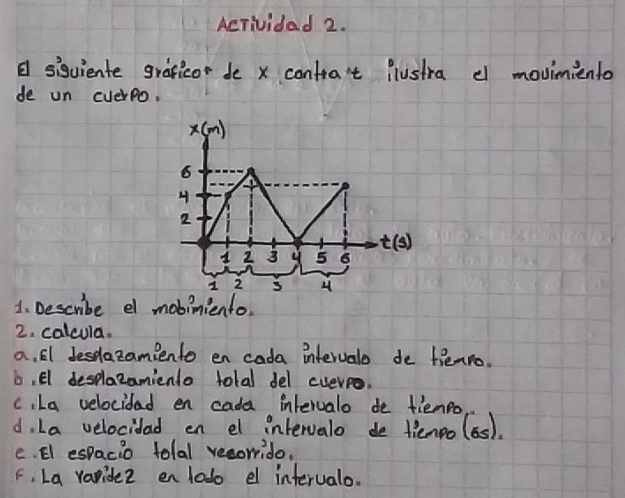 ACTIVIDAD 2.
El siguiente gráfico de x contra t ilustra el movimiento
de un cuerpo.
x(m)
6
4
2
1 2 3 4 5 6 t(s)
1 2 3 4
1. Describe el mobimiento.
2. calcula.
a. El desplazamiento en cada intervalo de tiempo.
b. El desplazamiento total del cuerpo.
c. La velocidad en cada intervalo de tiempo.
d. La velocidad en el intervalo de tiempo (6s).
e. El espacio total recorrido.
f. La rapidez en todo el intervalo.